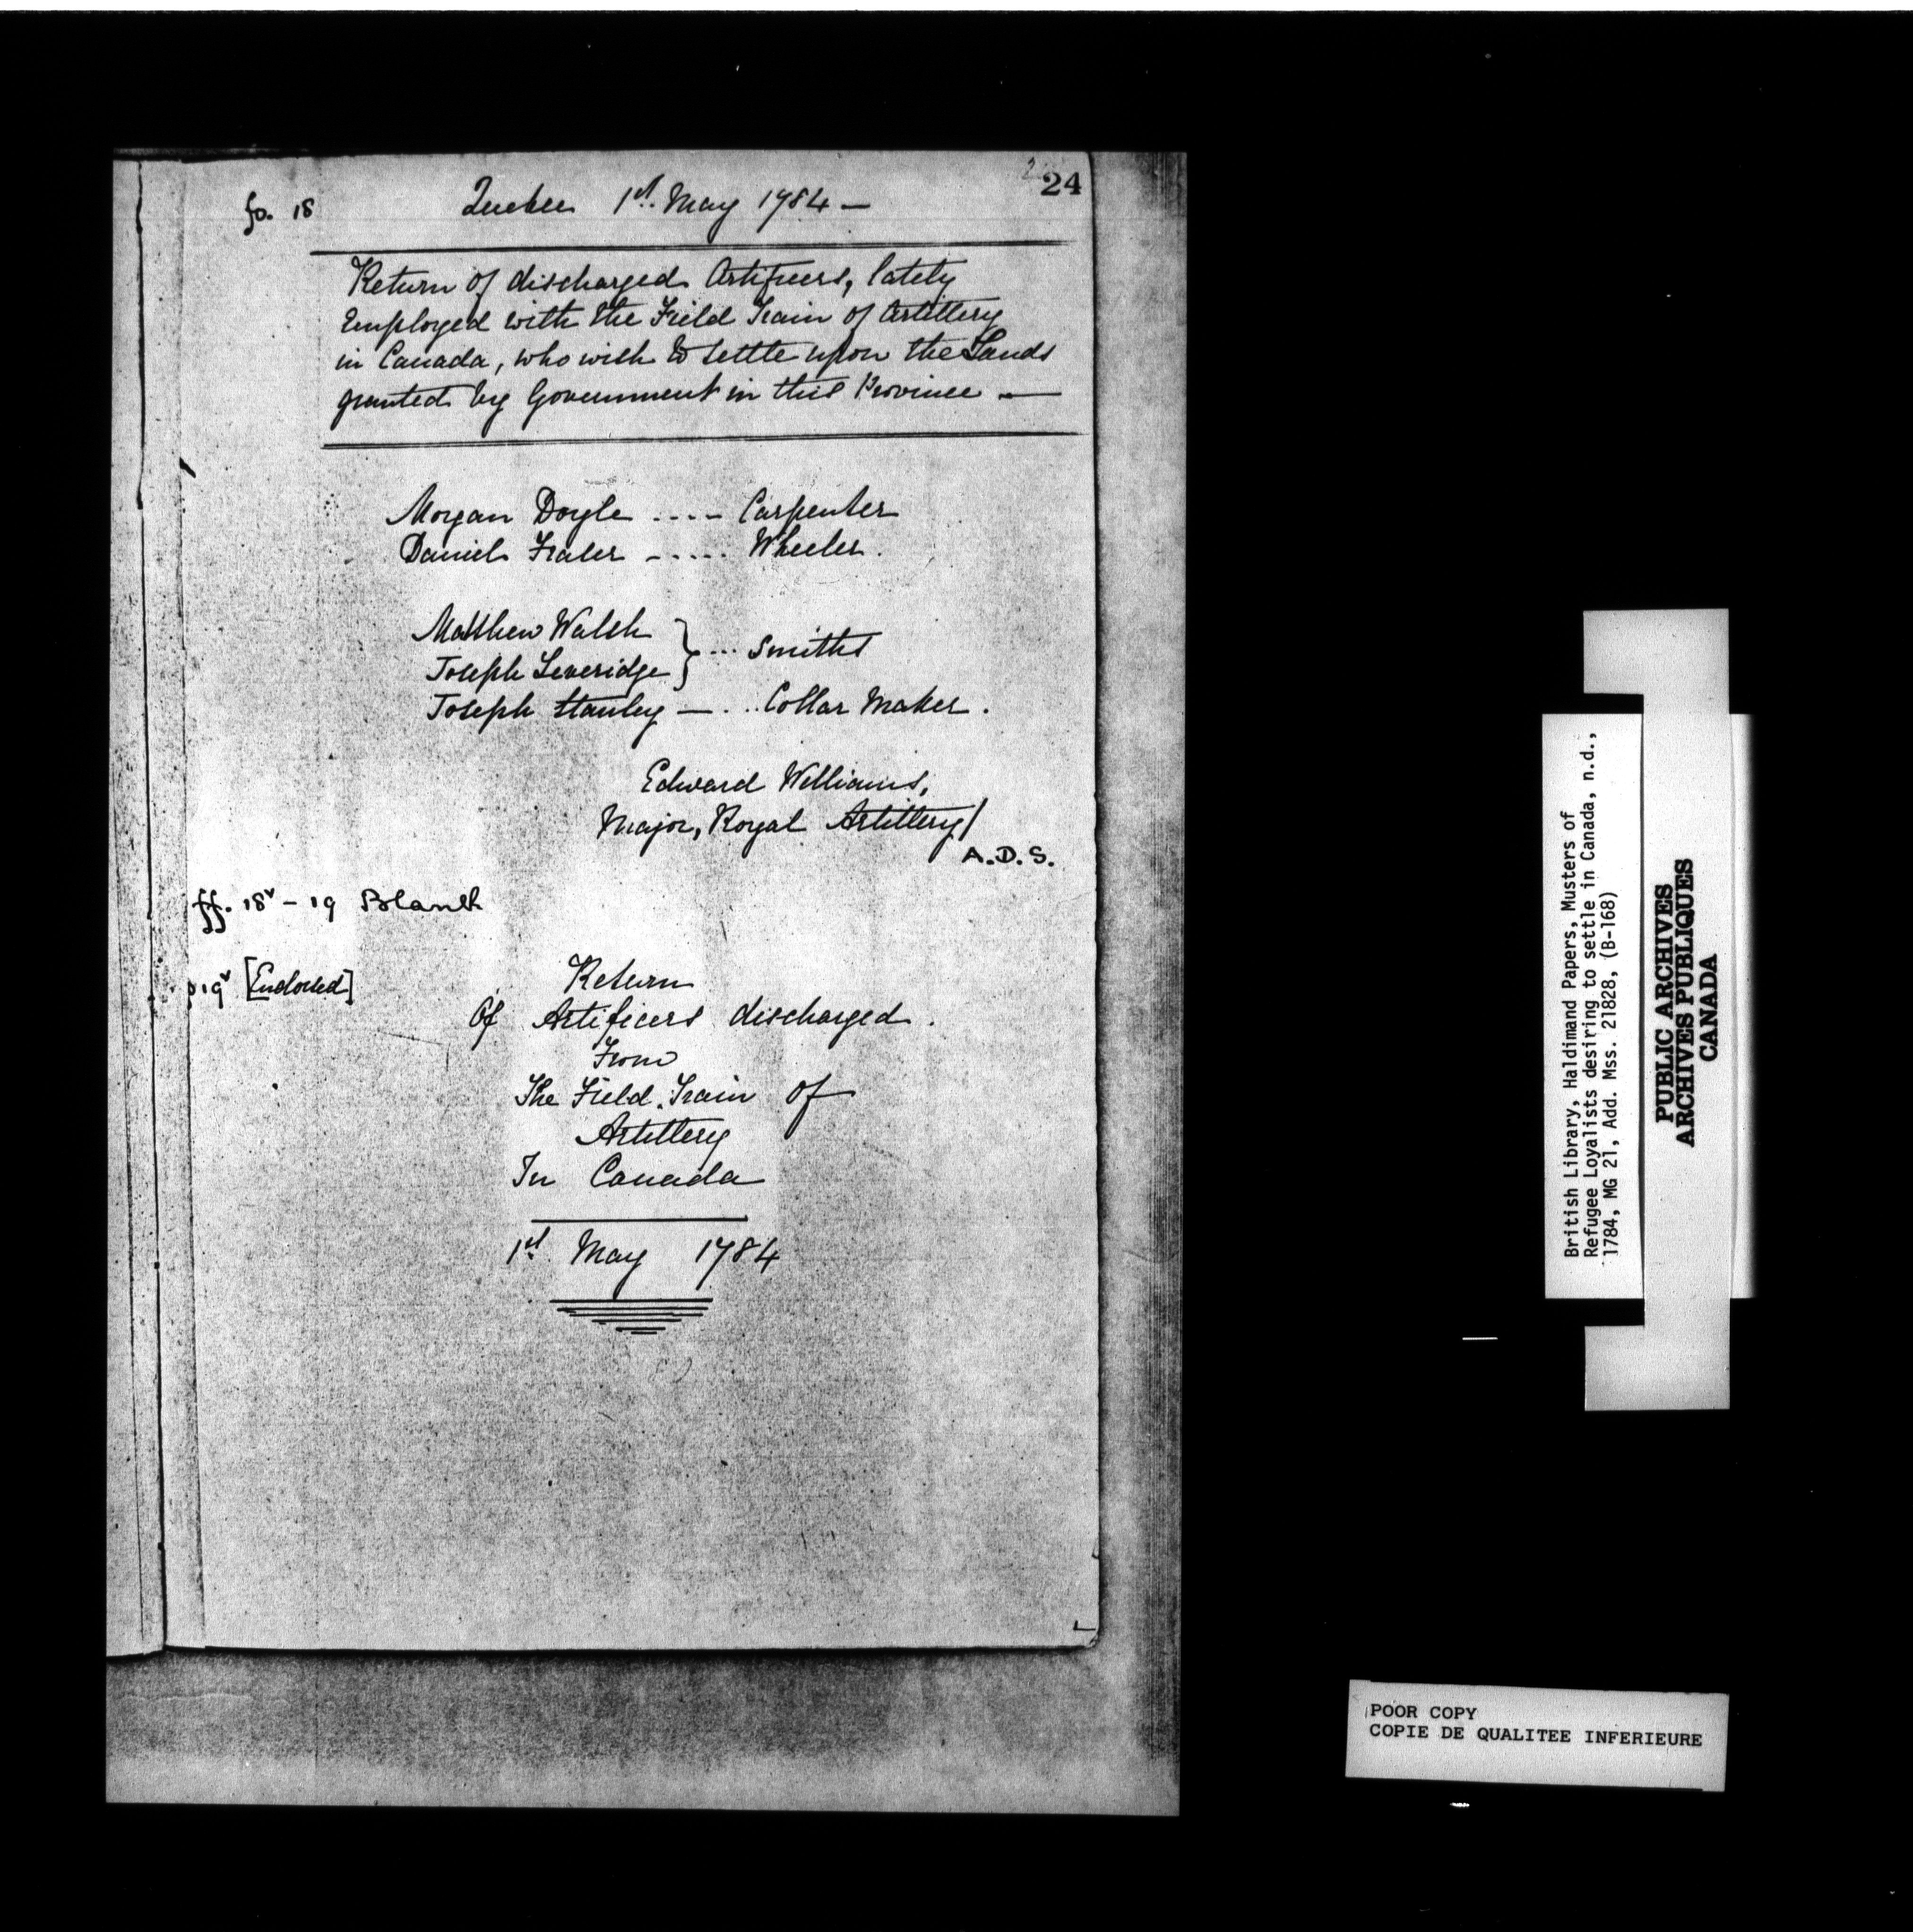 24
fo. 18
Quebec 1st. May 1784 —
Return of discharged Artificers, lately
Employed with the Field Train of Artillery
in Canada, who wish to settle upon the Lands
granted by Government in this Province —
Morgan Doyle .... Carpenter
Daniel Fraser ..... Wheeler.
Matthew Walsh
Joseph Leveridge } ... Smiths
Joseph Stanley — ... Collar Maker.
Edward Williams,
Major, Royal Artillery/
A.D.S.
ff. 18v - 19 Blank
19v [Endorsed]
Return
Of Artificers discharged.
From
The Field Train of
Artillery
In Canada
1st May 1784
British Library, Haldimand Papers, Musters of
Refugee Loyalists desiring to settle in Canada, n.d.,
1784, MG 21, Add. Mss. 21828, (B-168)
PUBLIC ARCHIVES
ARCHIVES PUBLIQUES
CANADA
POOR COPY
COPIE DE QUALITEE INFERIEURE